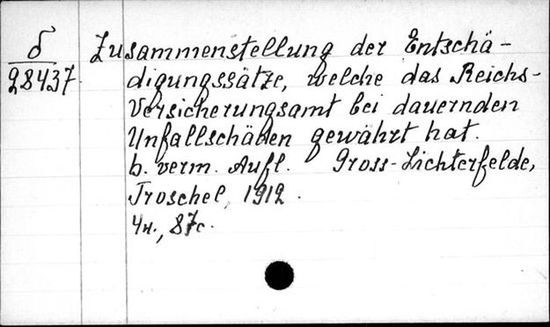 δ
28437
Zusammenstellung der Entschä-
digungssätze, welche das Reichs-
Versicherungsamt bei dauernden
Unfallschäden gewährt hat.
6. verm. Aufl. Gross-Lichterfelde,
Troschel, 1912.
4н., 87с.